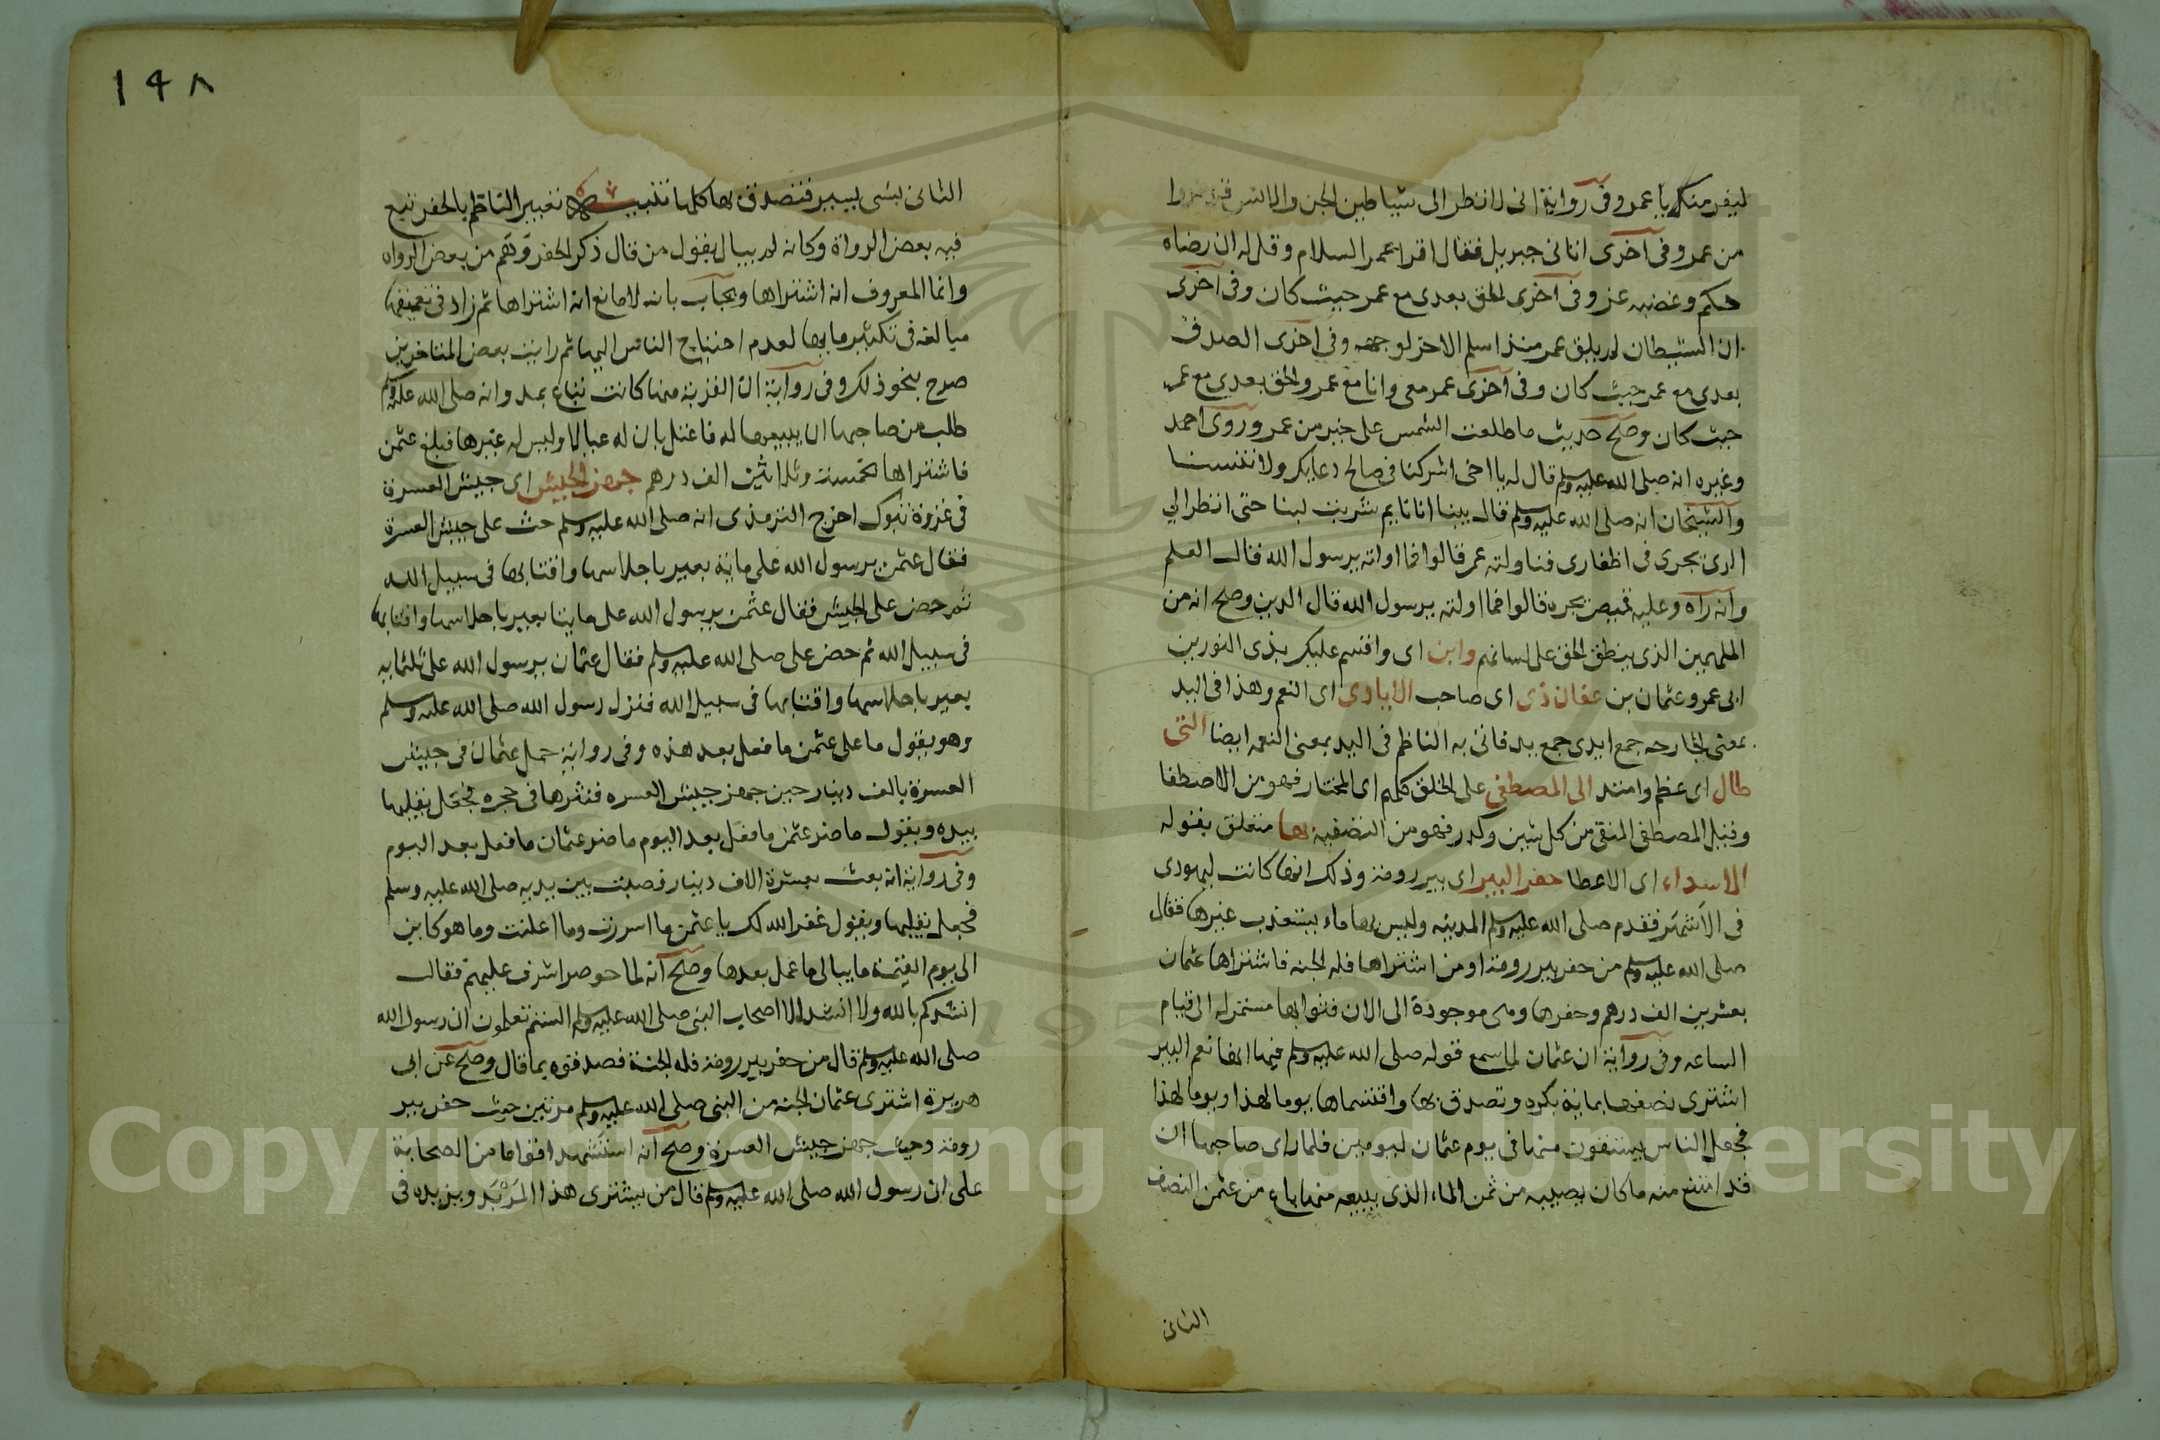 ليفر منك يا عمر وفي رواية اني لانظر الى شياطين الجن والانس قد فروا
من عمر وفي اخرى اتاني جبريل فقال اقرا عمر السلام وقل له ان رضاه
حكم وغضبه عز وفي اخرى الحق بعدى مع عمر حيث كان وفي اخرى
ان الشيطان لم يلق عمر منذ اسلم الاخر لوجهه وفي اخرى الصدق
بعدى مع عمر حيث كان وفي اخرى عمر معى وانا مع عمر والحق بعدى مع عمر
حيث كان وصح حديث ما طلعت الشمس على خير من عمر وروى احمد
وغيره انه صلى الله عليه وسلم قال له يا اخى اشركنا في صالح دعايك ولا تنسنا
والشيخان انه صلى الله عليه وسلم قال بينا انا نايم شربت لبنا حتى انظر الي
الرى يجرى في اظفارى فناولته عمر قالوا فما اولته يرسول الله قال العلم
وانه راه وعليه قميص يجره قالوا فما اولته يرسول الله قال الدين وصح انه من
الملهمين الذى ينطق الحق على لسانهم وابن اى واقسم عليك بذى النورين
ابى عمرو عثمان بن عفان ذى اى صاحب الايادى اى النعم وهذا في اليد
بمعنى الجارحه جمع ايدى جمع يد فاتى به الناظم في اليد بمعنى النعمه ايضا التى
طال اى عظم وامتد الى المصطفى على الخلق كلهم اى المختار فهو من الاصطفا
وقيل المصطفى المنقى من كل شين وكدر فهو من التصفية بها متعلق بقوله
الاسداء اى الاعطا حفر البير اى بير رومة وذلك انها كانت ليهودى
في الاشهر فقدم صلى الله عليه وسلم المدينه وليس بها ماء يستعذب غيرها فقال
صلى الله عليه وسلم من حفر بير رومة او من اشتراها فله الجنه فاشتراها عثمان
بعشرين الف درهم وحفرها وهى موجودة الى الان فثوابها مستمر له الى قيام
الساعه وفي رواية ان عثمان لما سمع قوله صلى الله عليه وسلم فيها انها نعم البير
اشترى نصفها بماية بكرة وتصدق بها واقتسماها يوما لهذا ويوما لهذا
فجعل الناس يستقون منها في يوم عثمان ليومين فلما راى صاحبها ان
قد امتنع منه ما كان يصيبه من ثمن الماء الذى يبيعه منها باع من عثمن النصف
الثانى
١٤٨
الثانى بشى يسير فتصدق بها كلها تنبيه تعبير الناظم بالحفر تبع
فيه بعض الرواة وكانه لم يبال بقول من قال ذكر الحفر وهم من بعض الرواه
وانما المعروف انه اشتراها ويجاب بانه لا مانع انه اشتراها ثم زاد في تعميقها
مبالغه في تكثير مايها لعدم احتياج الناس اليها ثم رايت بعض المتاخرين
صرح بنحو ذلك وفي رواية ان القربة منها كانت تباع بمد وانه صلى الله عليه وسلم
طلب من صاحبها ان يبيعها له فاعتل بان له عيالا وليس له غيرها فبلغ عثمن
فاشتراها بخمسة وثلاثين الف درهم جهز الجيش اى جيش العسرة
في غزوة تبوك اخرج الترمذى انه صلى الله عليه وسلم حث على جيش العسرة
فقال عثمن يرسول الله على ماية بعير باحلاسها واقتابها في سبيل الله
ثم حض على الجيش فقال عثمن يرسول الله على مايتا بعير باحلاسها واقتابها
في سبيل الله ثم حض على صلى الله عليه وسلم فقال عثمان يرسول الله على ثلثمايه
بعير باحلاسها واقتابها في سبيل الله فنزل رسول الله صلى الله عليه وسلم
وهو يقول ما على عثمن ما فعل بعد هذه وفي رواية حمل عثمان في جيش
العسرة بالف دينار حين جهز جيش العسره فنثرها في حجره فجعل يقلبها
بيده ويقول ما ضر عثمن ما فعل بعد اليوم ما ضر عثمان ما فعل بعد اليوم
وفي رواية انه بعث بعشرة الاف دينار فصبت بين يديه صلى الله عليه وسلم
فجعل يقلبها ويقول غفر الله لك يا عثمن ما اسررت وما اعلنت وما هو كاين
الى يوم القيمة ما يبالى ما عمل بعدها وصح انه لما حوصر اشرف عليهم فقال
انشدكم بالله ولا انشد الا اصحاب النبى صلى الله عليه وسلم الستم تعلمون ان رسول الله
صلى الله عليه وسلم قال من حفر بير رومة فله الجنة فصدقوه بما قال وصح عن ابى
هريرة اشترى عثمان الجنه من النبى صلى الله عليه وسلم مرتين حيث حفر بير
رومة وحيث جهز جيش العسرة وصح انه استشهد اقواما من الصحابة
على ان رسول الله صلى الله عليه وسلم قال من يشترى هذا المربد ويزيده في
Copyright © King Saud University
1957